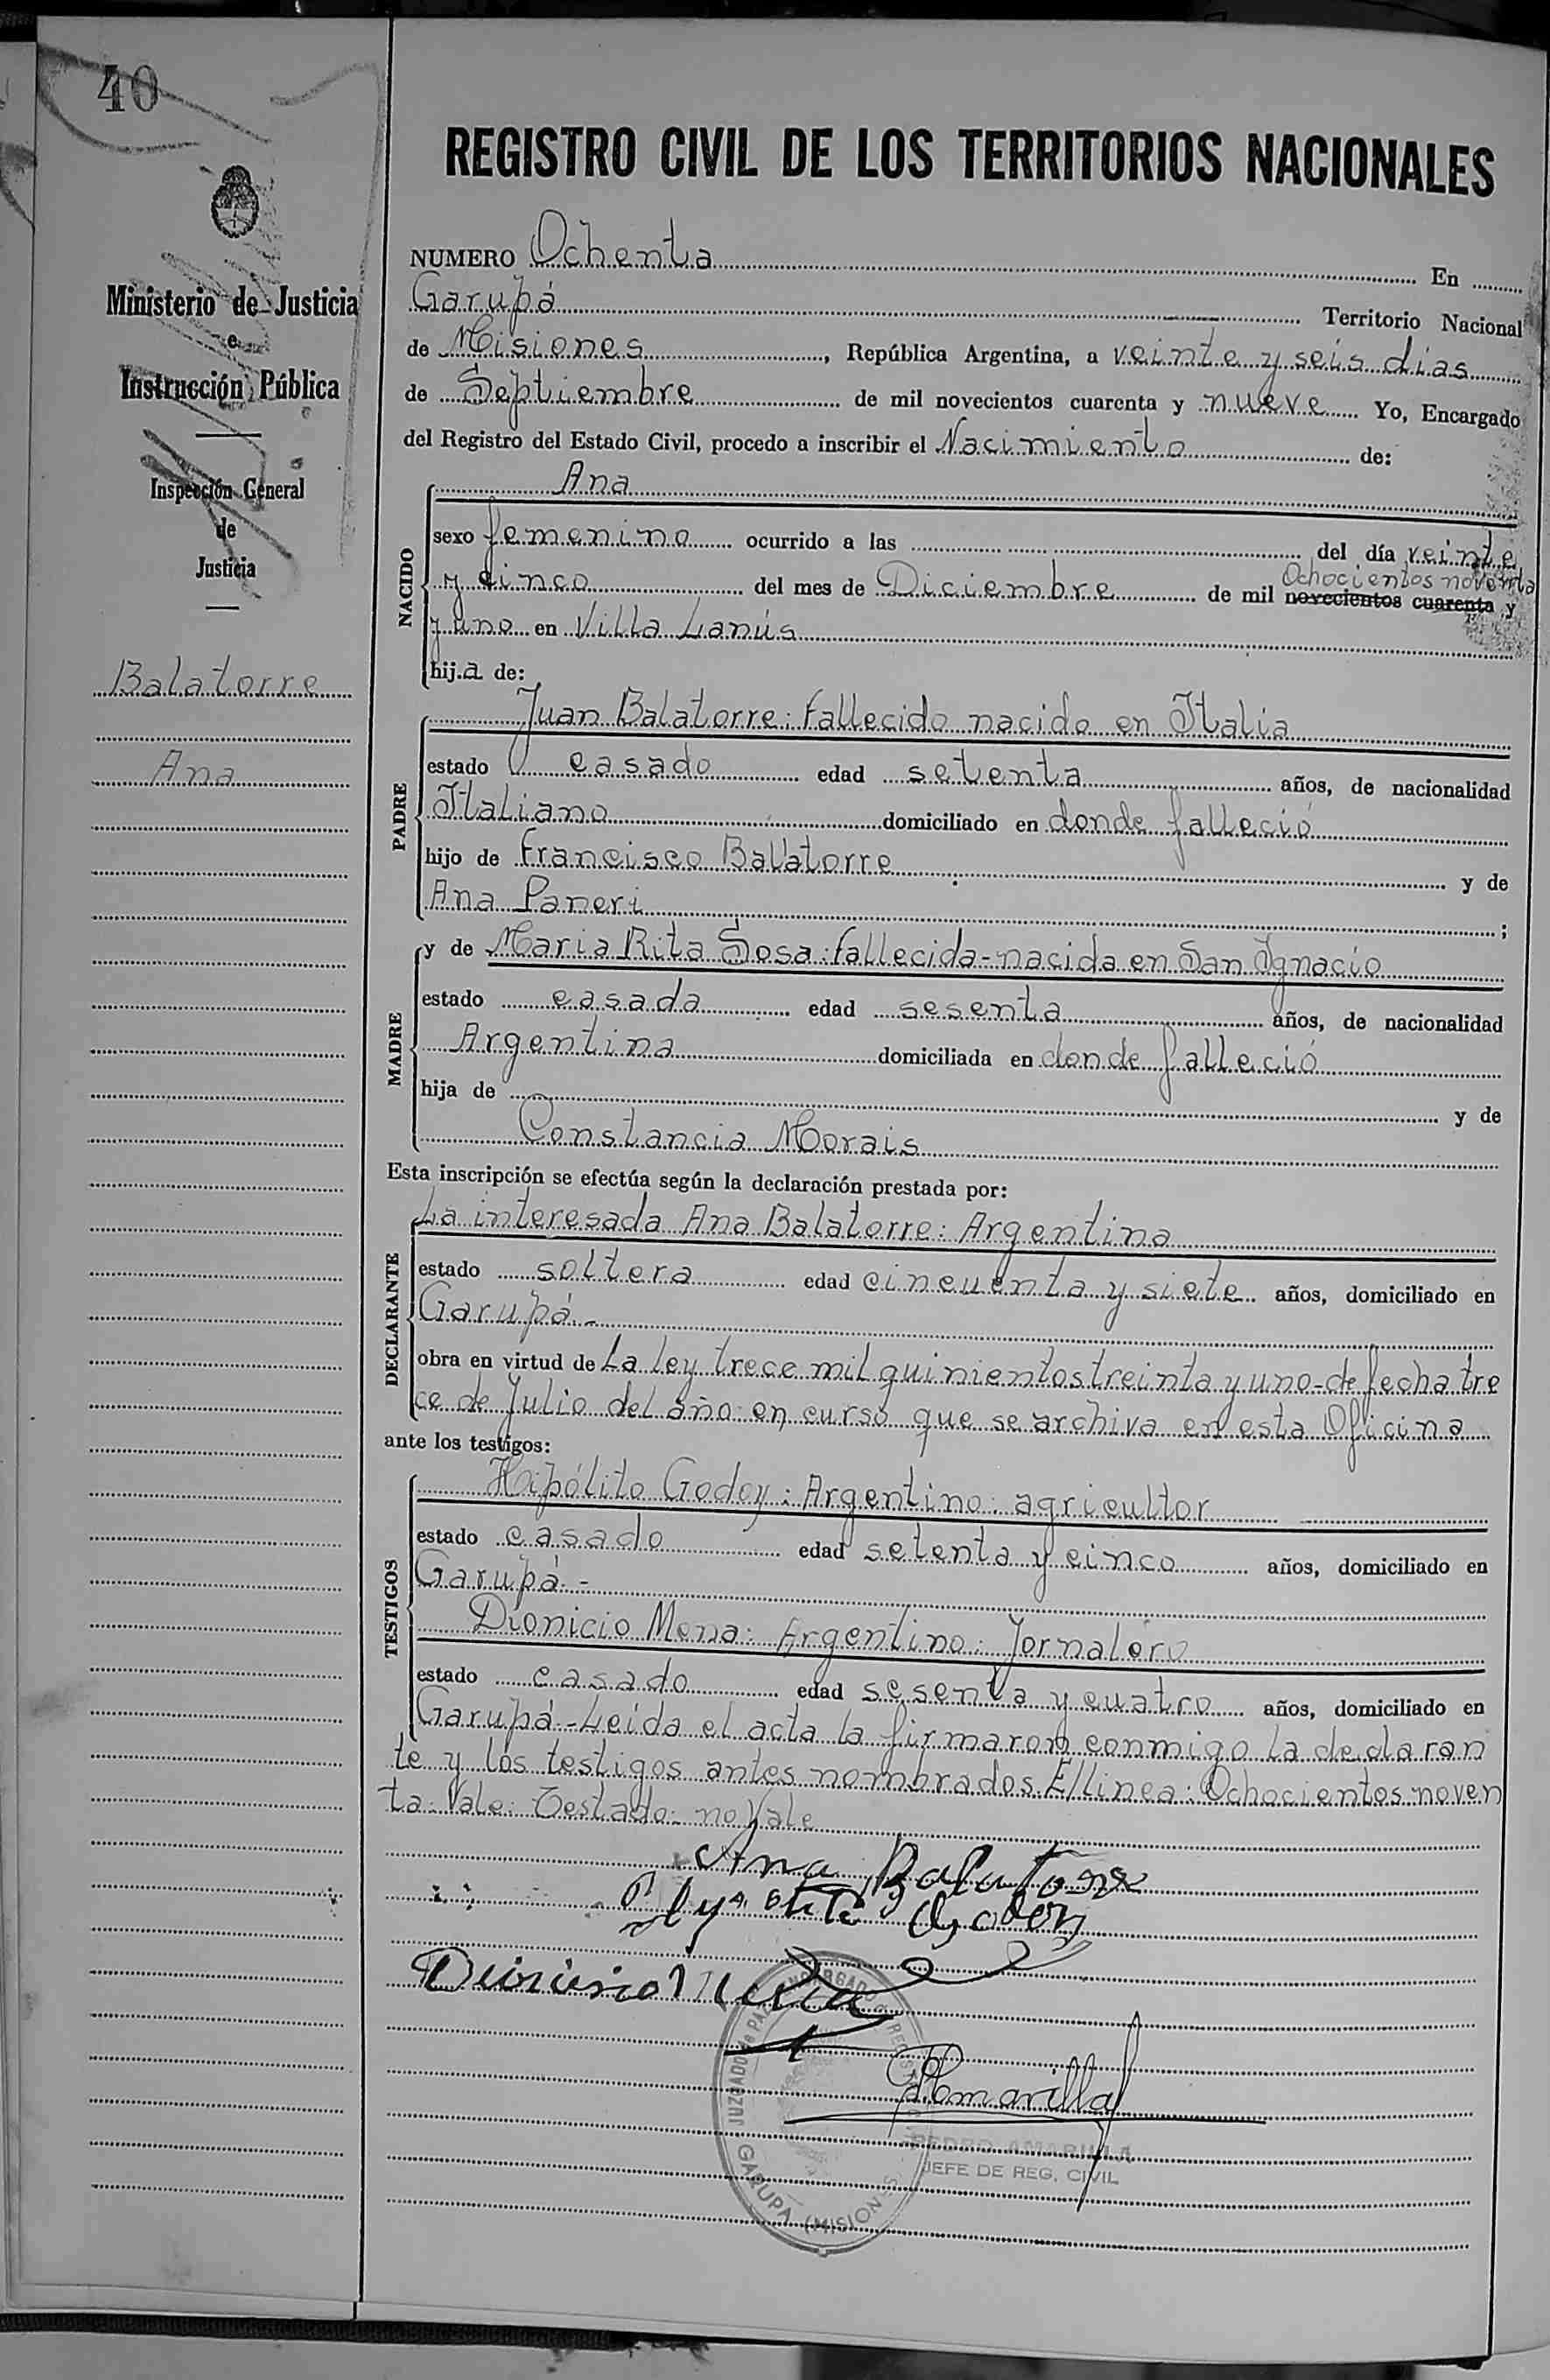 40
Ministerio de Justicia
e
Instrucción Pública
Inspección General
de
Justicia
Balatorre
Ana
REGISTRO CIVIL DE LOS TERRITORIOS NACIONALES
NUMERO Ochenta En
Garupá Territorio Nacional
de Misiones, República Argentina, a veinte y seis dias
de Septiembre de mil novecientos cuarenta y nueve Yo, Encargado
del Registro del Estado Civil, procedo a inscribir el Nacimiento de:
NACIDO
Ana
sexo femenino ocurrido a las del día veinte
Ochocientos noventa
y cinco del mes de Diciembre de mil novecientos cuarenta y
y uno en Villa Lanús
hij.a de:
PADRE
Juan Balatorre: fallecido nacido en Italia
estado casado edad setenta años, de nacionalidad
Italiano domiciliado en donde falleció
hijo de Francisco Balatorre y de
Ana Paneri ;
MADRE
y de Maria Rita Sosa: fallecida-nacida en San Ignacio
estado casada edad sesenta años, de nacionalidad
Argentina domiciliada en donde falleció
hija de y de
Constancia Morais
Esta inscripción se efectúa según la declaración prestada por:
DECLARANTE
La interesada Ana Balatorre: Argentina
estado soltera edad cincuenta y siete años, domiciliado en
Garupá.-
obra en virtud de La ley trece mil quinientos treinta y uno-de fecha tre
ce de Julio del año en curso que se archiva en esta Oficina
ante los testigos:
TESTIGOS
Hipólito Godoy: Argentino: agricultor
estado casado edad setenta y cinco años, domiciliado en
Garupá.-
Dionicio Mena: Argentino: Jornalero
estado casado edad sesenta y cuatro años, domiciliado en
Garupá-Leída el acta la firmaron conmigo la declaran
te y los testigos antes nombrados. E/linea: Ochocientos noven
ta: Vale: Testado: no Vale
Ana Balatorre
Godoy
Dionisio Mena
PAmarilla
JUZGADO de PAZ ENCARGADO REGISTRO
GARUPA (MISIONES)
PEDRO AMARILLA
JEFE DE REG. CIVIL